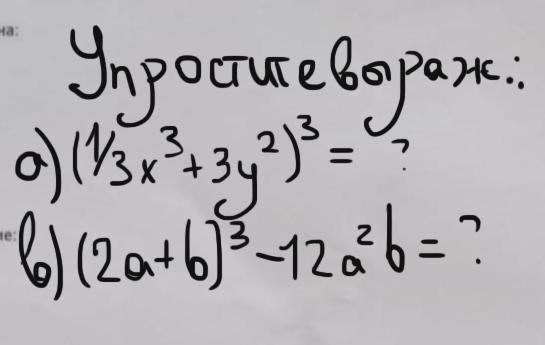 на:
Упростите выраж.:
а) (1/3x³+3y²)³ = ?
не:
в) (2a+b)³-12a²b = ?